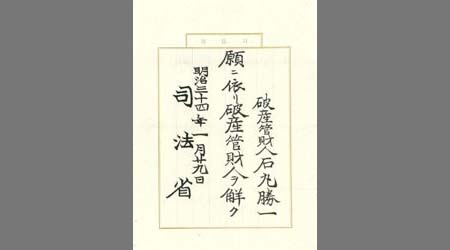 破産管財人石丸勝一
願ニ依リ破産管財人ヲ解ク
明治三十四年一月廿九日
司法省